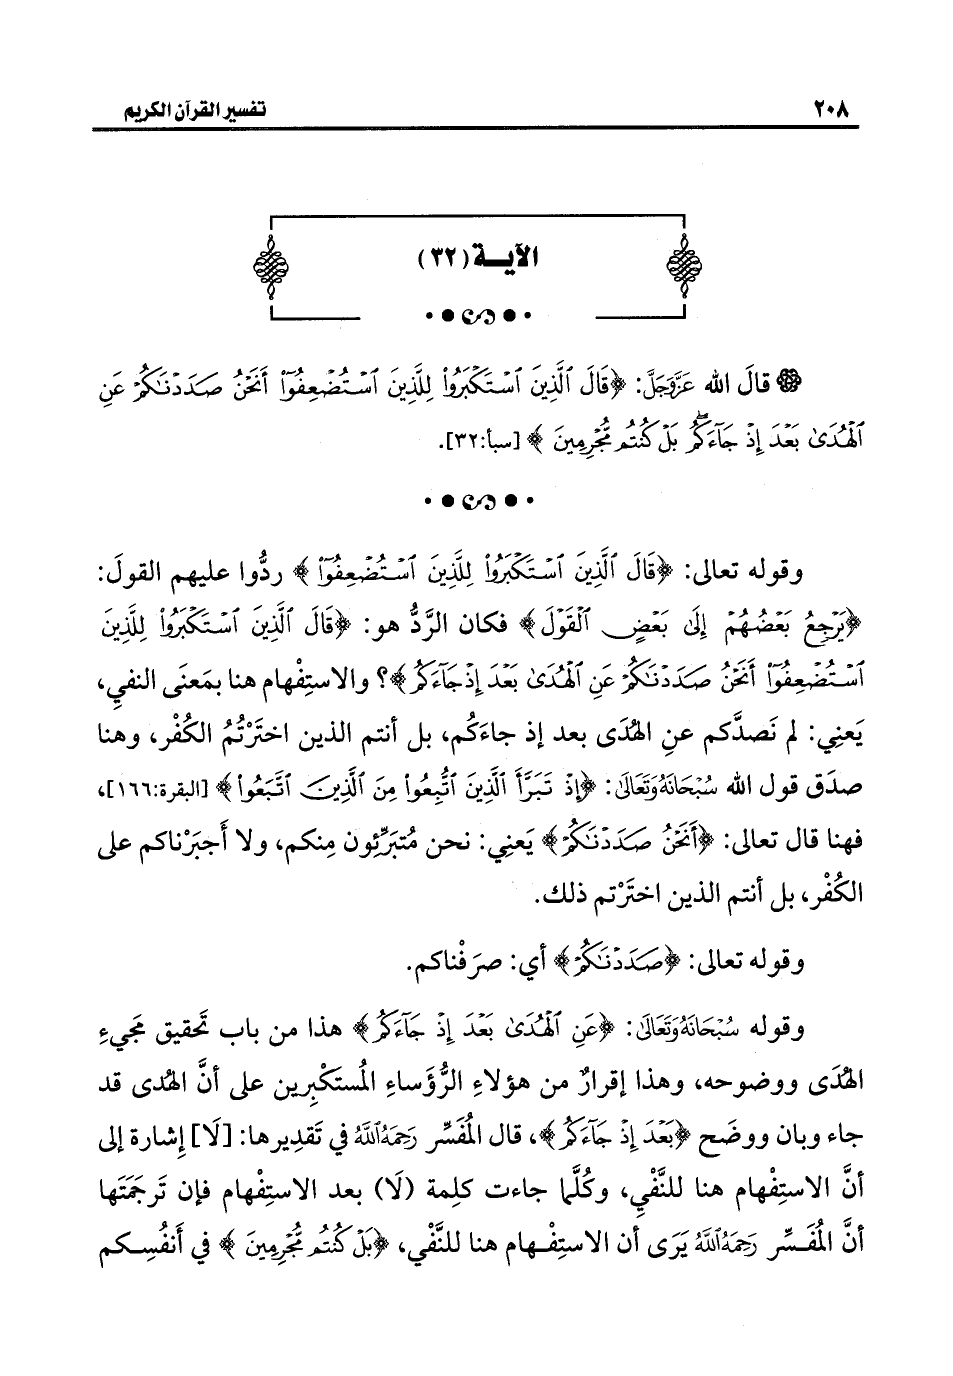 ٢٠٨ تفسير القرآن الكريم
الآيـــة (٣٢)
قالَ الله عَزَّوَجَلَّ: ﴿قَالَ ٱلَّذِينَ ٱسْتَكْبَرُوا۟ لِلَّذِينَ ٱسْتُضْعِفُوٓا۟ أَنَحْنُ صَدَدْنَـٰكُمْ عَنِ
ٱلْهُدَىٰ بَعْدَ إِذْ جَآءَكُم ۖ بَلْ كُنتُم مُّجْرِمِينَ﴾ [سبأ:٣٢].
وقوله تعالى: ﴿قَالَ ٱلَّذِينَ ٱسْتَكْبَرُوا۟ لِلَّذِينَ ٱسْتُضْعِفُوٓا۟﴾ ردُّوا عليهم القولَ:
﴿يَرْجِعُ بَعْضُهُمْ إِلَىٰ بَعْضٍ ٱلْقَوْلَ﴾ فكان الرَّدُّ هو: ﴿قَالَ ٱلَّذِينَ ٱسْتَكْبَرُوا۟ لِلَّذِينَ
ٱسْتُضْعِفُوٓا۟ أَنَحْنُ صَدَدْنَـٰكُمْ عَنِ ٱلْهُدَىٰ بَعْدَ إِذْ جَآءَكُم﴾؟ والاستِفْهام هنا بمَعنَى النفيِ،
يَعنِي: لم نَصدَّكم عنِ الهُدَى بعد إذ جاءَكُم، بل أنتم الذين اختَرْتُمُ الكُفْر، وهنا
صدَق قول الله سُبْحَانَهُ وَتَعَالَى: ﴿إِذْ تَبَرَّأَ ٱلَّذِينَ ٱتُّبِعُوا۟ مِنَ ٱلَّذِينَ ٱتَّبَعُوا۟﴾ [البقرة:١٦٦]،
فهنا قال تعالى: ﴿أَنَحْنُ صَدَدْنَـٰكُمْ﴾ يَعنِي: نحن مُتبَرِّئون مِنكم، ولا أَجبَرْناكم على
الكُفْر، بل أنتم الذين اختَرْتم ذلك.
وقوله تعالى: ﴿صَدَدْنَـٰكُمْ﴾ أي: صرَفْناكم.
وقوله سُبْحَانَهُ وَتَعَالَى: ﴿عَنِ ٱلْهُدَىٰ بَعْدَ إِذْ جَآءَكُم﴾ هذا من باب تَحقيق مَجيءِ
الهُدَى ووضوحه، وهذا إقرارٌ من هؤلاءِ الرُّؤَساءِ المُستكْبِرين على أنَّ الهُدى قد
جاء وبان ووضَح ﴿بَعْدَ إِذْ جَآءَكُم﴾، قال المُفَسِّر رَحِمَهُ اللَّهُ في تَقديرها: [لَا] إشارة إلى
أنَّ الاستِفْهام هنا للنَّفْيِ، وكُلَّما جاءت كلِمة (لَا) بعد الاستِفْهام فإن تَرجَمَتَها
أنَّ المُفَسِّر رَحِمَهُ اللَّهُ يَرَى أن الاستِفْهام هنا للنَّفْي، ﴿بَلْ كُنتُم مُّجْرِمِينَ﴾ في أَنفُسِكم